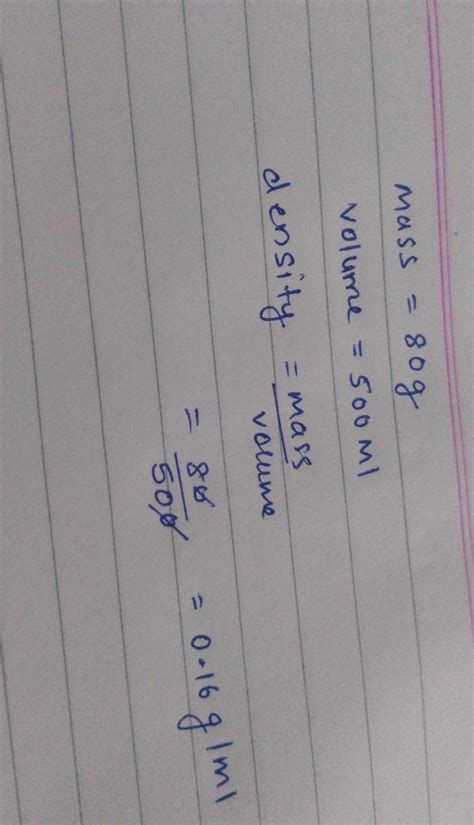 mass = 80g
volume = 500ml
density = mass
volume
= 80
500
= 0.16 g/ml